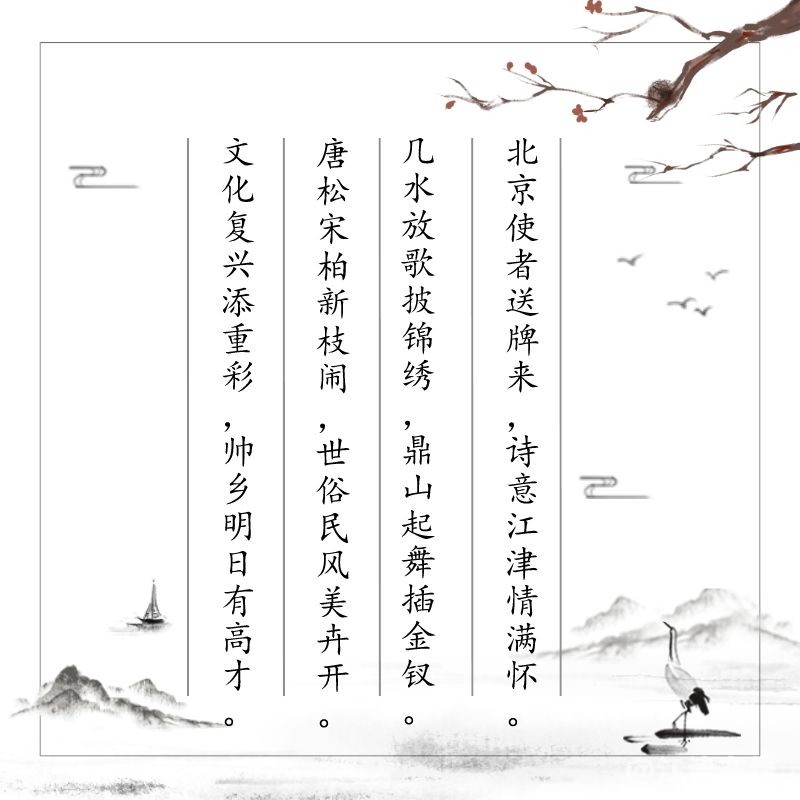 北京使者送牌来，诗意江津情满怀。
几水放歌披锦绣，鼎山起舞插金钗。
唐松宋柏新枝闹，世俗民风美卉开。
文化复兴添重彩，帅乡明日有高才。